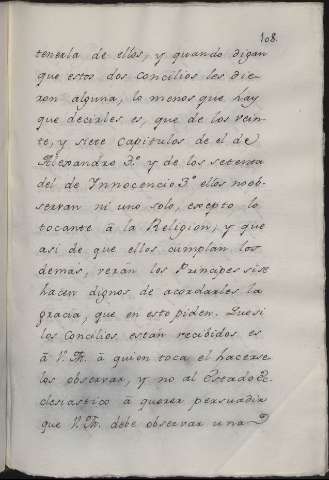 108.
tenerla de ellos, y quando digan
que estos dos Concilios les die-
ron alguna, lo menos que hay
que decirles es, que de los vein-
te, y siete Capitulos de el de
Alexandro 3.º y de los setenta
del de Innocencio 3.º ellos no ob-
servan ni uno solo, excepto lo
tocante à la Religion, y que
asi de que ellos cumplan los
demas, veran los Principes si se
hacen dignos de acordarles la
gracia, que en esto piden. Que si
los Concilios estan recibidos es
à V. A. à quien toca el hacerse
los observar, y no al Estado Ec-
clesiastico à querer persuadir
que V. A. debe observar una